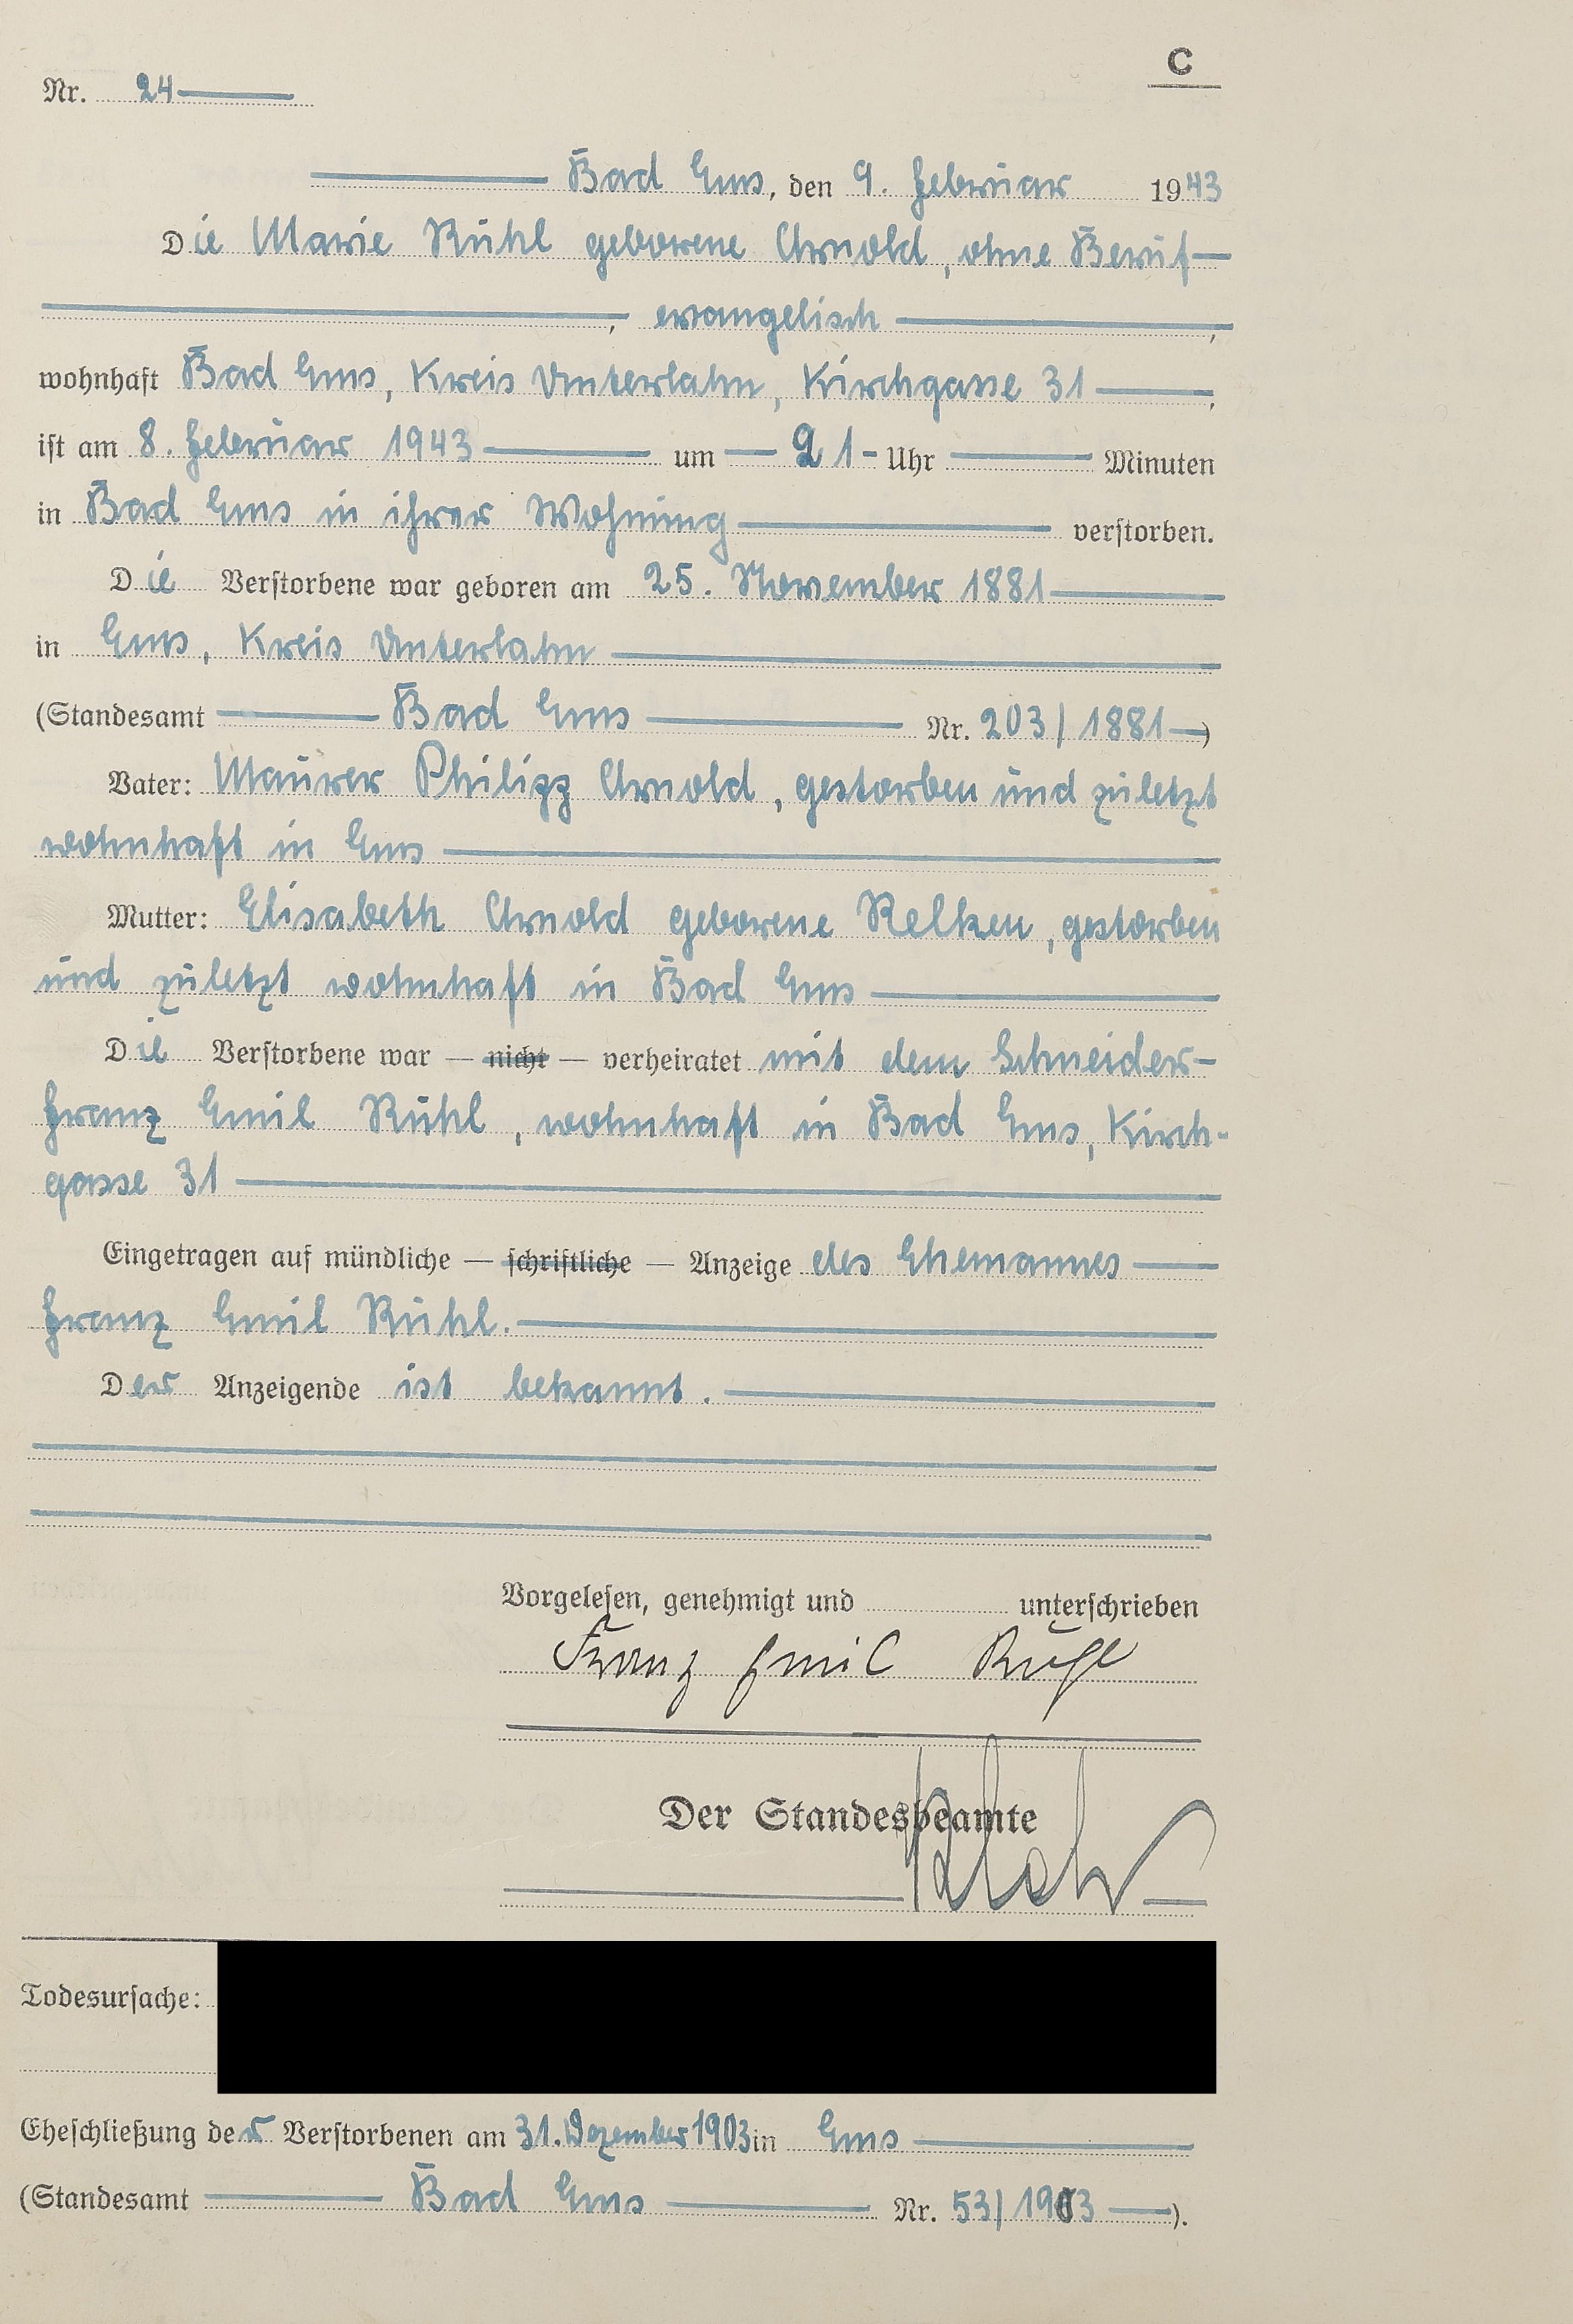 C
Nr. 24
Bad Ems, den 9. Februar 1943
Die Marie Rühl geborene Arnold, ohne Beruf
, evangelisch ,
wohnhaft Bad Ems, Kreis Unterlahn, Kirchgasse 31 ,
ist am 8. Februar 1943 um 21 Uhr Minuten
in Bad Ems in ihrer Wohnung verstorben.
Die Verstorbene war geboren am 25. November 1881
in Ems, Kreis Unterlahn
(Standesamt Bad Ems Nr. 203/1881)
Vater: Maurer Philipp Arnold, gestorben und zuletzt
wohnhaft in Ems
Mutter: Elisabeth Arnold geborene Relken, gestorben
und zuletzt wohnhaft in Bad Ems
Die Verstorbene war — nicht — verheiratet mit dem Schneider-
Franz Emil Rühl, wohnhaft in Bad Ems, Kirch-
gasse 31
Eingetragen auf mündliche — schriftliche — Anzeige des Ehemannes
Franz Emil Rühl.
Der Anzeigende ist bekannt.
Vorgelesen, genehmigt und unterschrieben
Franz Emil Rühl
Der Standesbeamte
Todesursache:
Eheschließung der Verstorbenen am 31. Dezember 1903 in Ems
(Standesamt Bad Ems Nr. 53/1903).